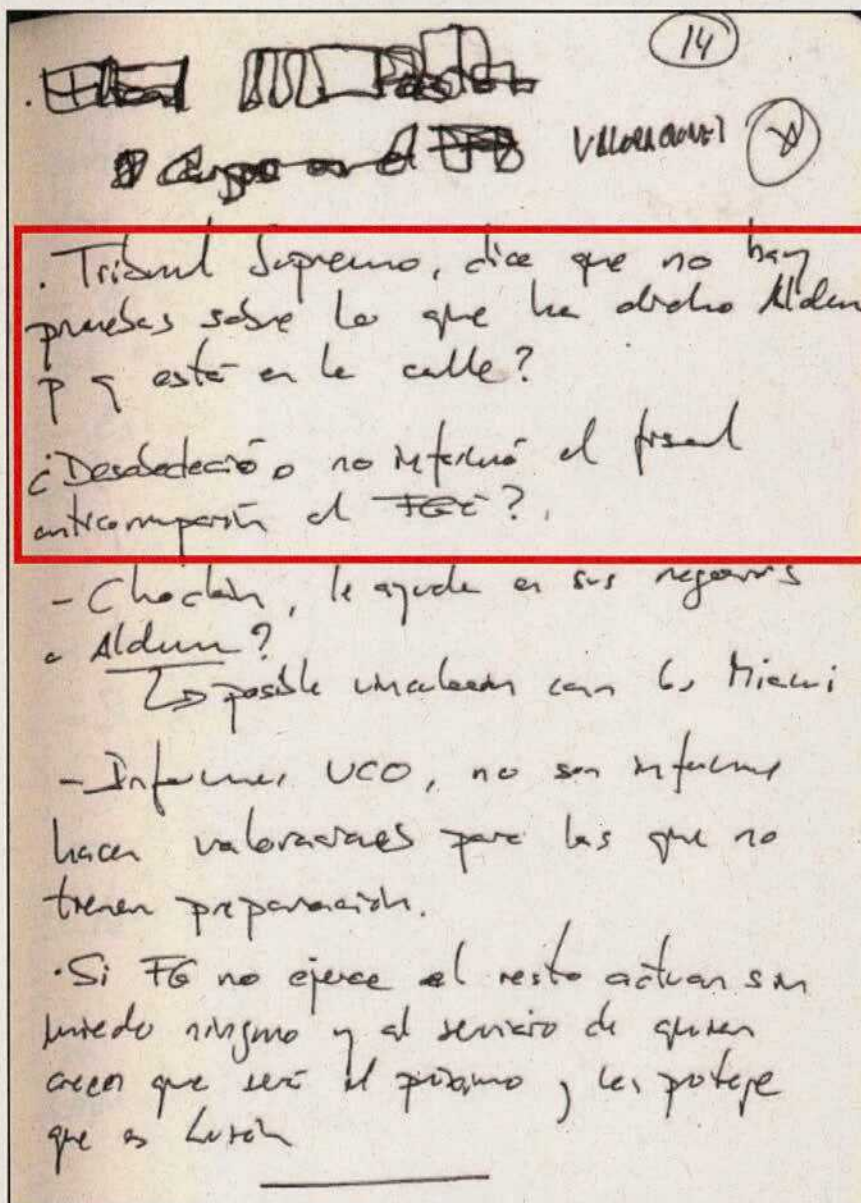 14
VALORACIONES
. Tribunal Supremo, dice que no hay
pruebas sobre lo que ha dicho Aldam
p q está en la calle?
¿Desobedeció o no informó el fiscal
anticorrupción al FGE?.
- Choclán, le ayuda en sus negocios
a Aldama?
↳ posible vinculación con los Miami
- Informes UCO, no son informes
hacen valoraciones para las que no
tienen preparación.
· Si FG no ejerce el resto actúan sin
miedo ninguno y al servicio de quien
creen que será el próximo y les protege
que es Luzón